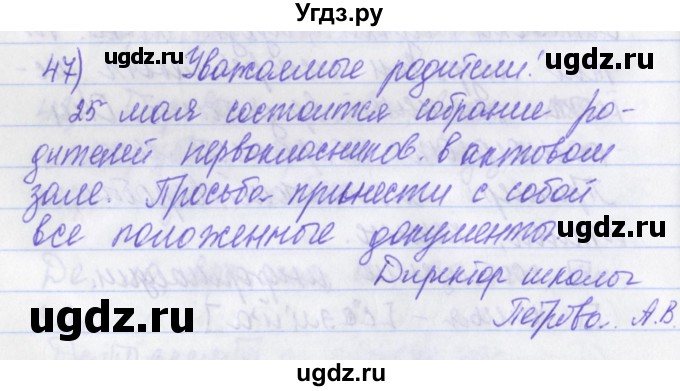 Угдз.ру
47) Уважаемые родители!
25 мая состоится собрание ро-
дителей первокласников. в актовом
зале. Просьба принести с собой
все положенные документы
Директор школы
Петрова. А.В.
ugdz.ru ugdz.ru ugdz.ru
ugdz.ru ugdz.ru
ugdz.ru ugdz.ru
ugdz.ru ugdz.ru ugdz.ru